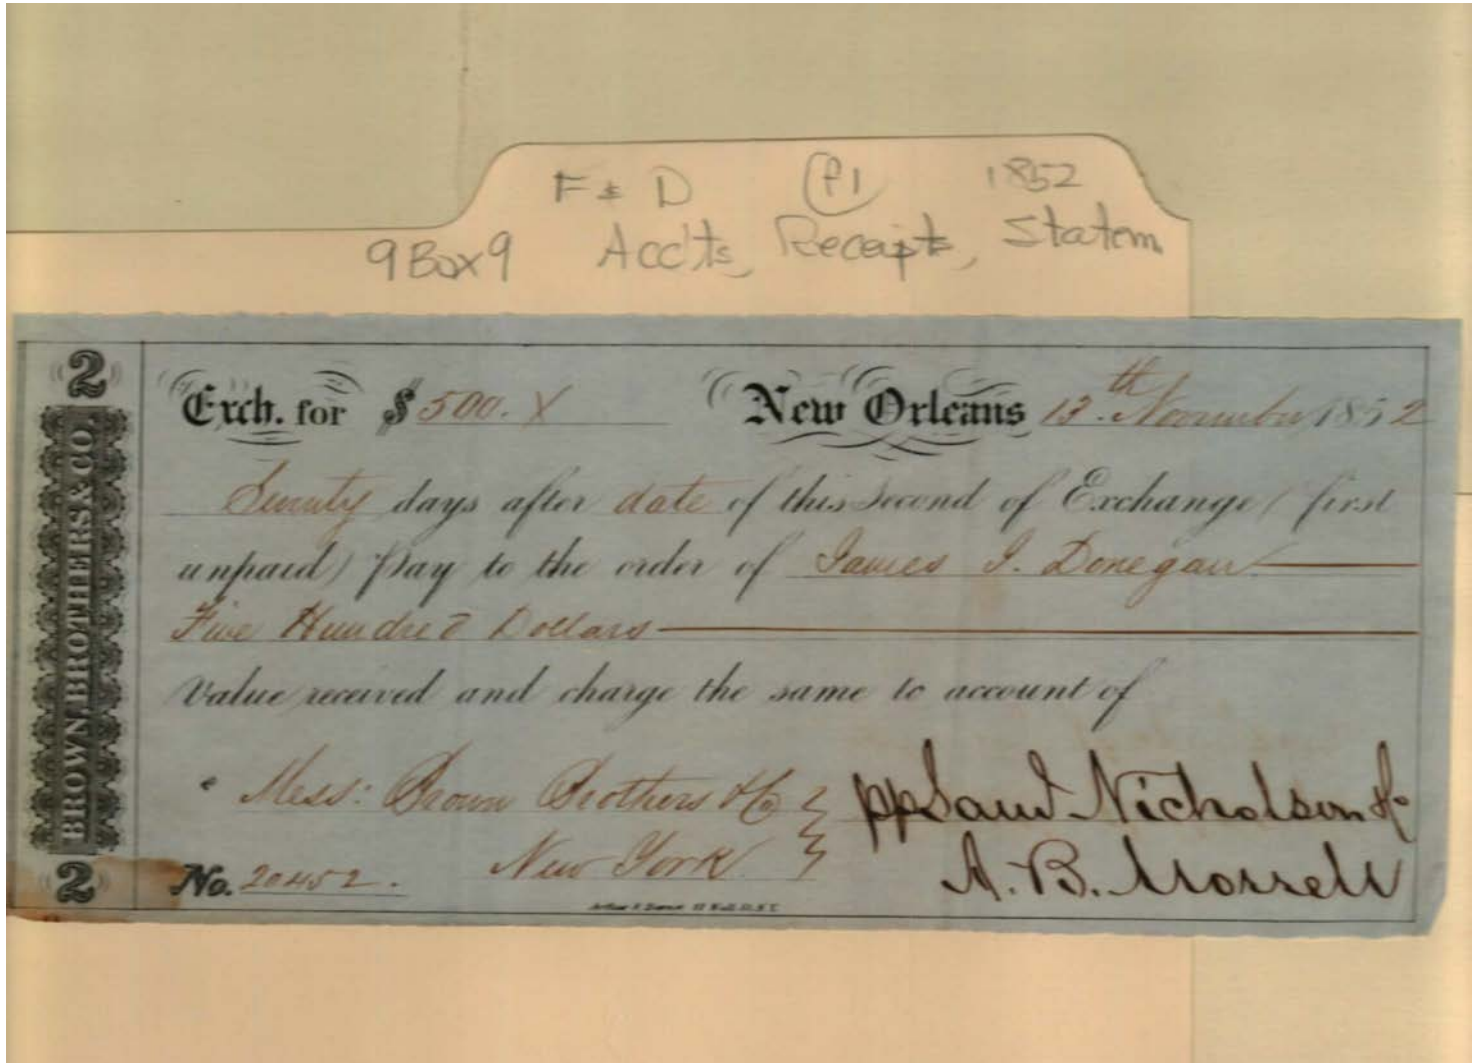 F & D P1 1852
9 Box 9 Accts, Receipts, Statem
2
BROWN, BROTHERS & CO.
2
Exch. for $ 500. X New Orleans 13.th November 1852
days after date of this Second of Exchange (first
unpaid) Pay to the order of James J. Donegan
Five Hundred Dollars
Value received and charge the same to account of
Mess: Brown Brothers & Co pp Saml Nicholson &
No. 20452. New York A. B. Morrell